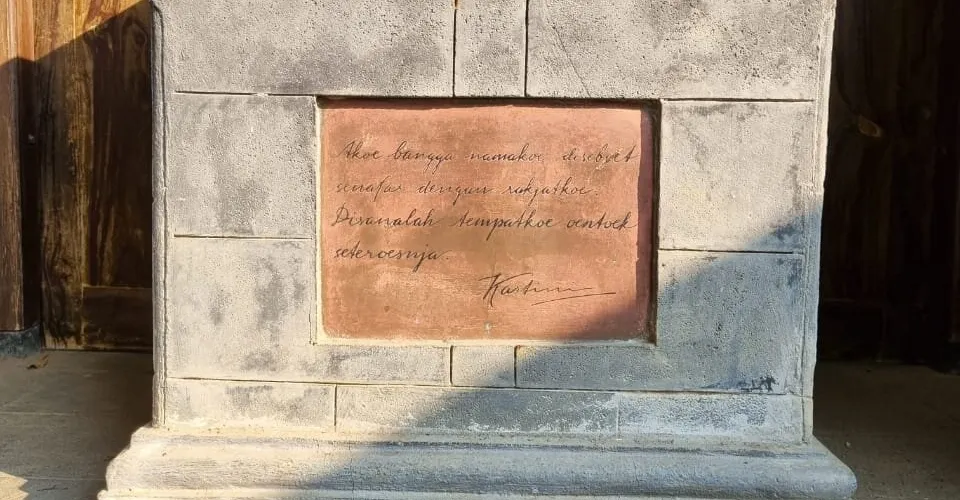 Akoe bangga namakoe disebvet
senafas dengan rakjatkoe.
Disanalah tempatkoe oentoek
seteroesnja.
Kartini